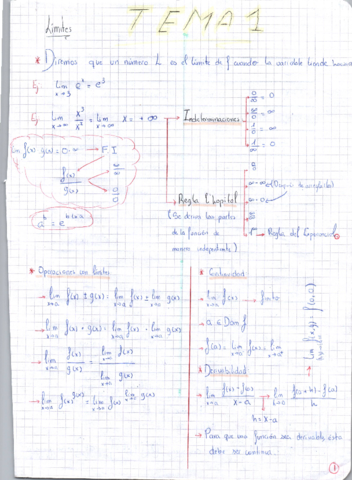 Límites
TEMA 1
* Decimos que un número L es el límite de f cuando la variable tiende hacia
Ej lim x→3 e^x = e^3
Ej lim x→∞ x^3/x^2 = lim x→∞ x = +∞
Indeterminaciones
f(x) g(x) = 0·∞ → F I
f(x)/g(x)
∞/∞
0/0
Regla L'hopital
(Se derivan las partes
de la función de
manera independiente)
→ Regla del Exponencial
* Operaciones con límites
→ lim x→a f(x) ± g(x) = lim x→a f(x) ± lim x→a g(x)
→ lim x→a f(x) · g(x) = lim x→a f(x) · lim x→a g(x)
→ lim x→a f(x)/g(x) = lim x→a f(x) / lim x→a g(x)
→ lim x→a f(x)^g(x) = lim x→a f(x)^lim x→a g(x)
* Continuidad
→ lim x→a f(x) finito
→ a ∈ Dom f
* Derivabilidad
→ lim x→a f(x) - f(a) / x-a = lim h→0 f(a+h) - f(a) / h
h = x-a
→ Para que una función sea derivable esta
debe ser continua.
1